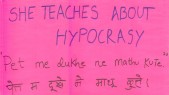 SHE TEACHES ABOUT
HYPOCRASY
"Pet me dukhe ne mathu kute"
पेत म दुखे ने माथु कुते।